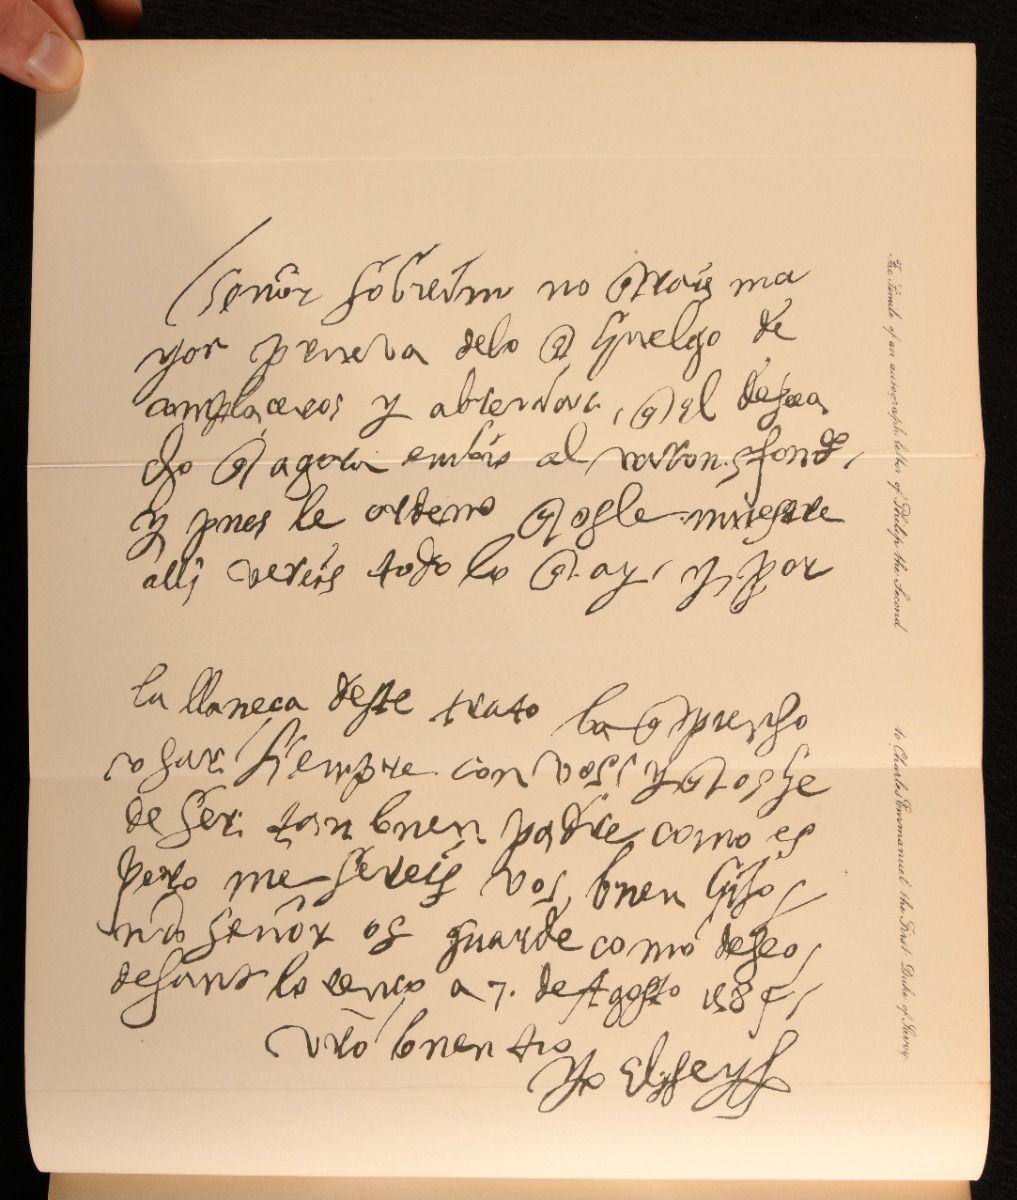 señor sobrino no q̃rais ma
yor prueva delo q̃ huelgo de
complaceros y el despa
cho q̃ agora embio al varon sfondº
y pues le ordeno q̃ os le muestre
alli vereis todo lo q̃ ay, y por
la llaneça deste trato lo q̃
usar siempre con vos, y q̃ os he
de ser tan buen padre como es
pero me sereis vos buen hijo
nr̃o señor os guarde como deseo
de sant lorenço a 7. de Agosto 158
vr̃o buen tio
Yo El Rey
Fac Simile of an autograph letter of Philip the Second
to Charles Emmanuel the First Duke of Savoy.